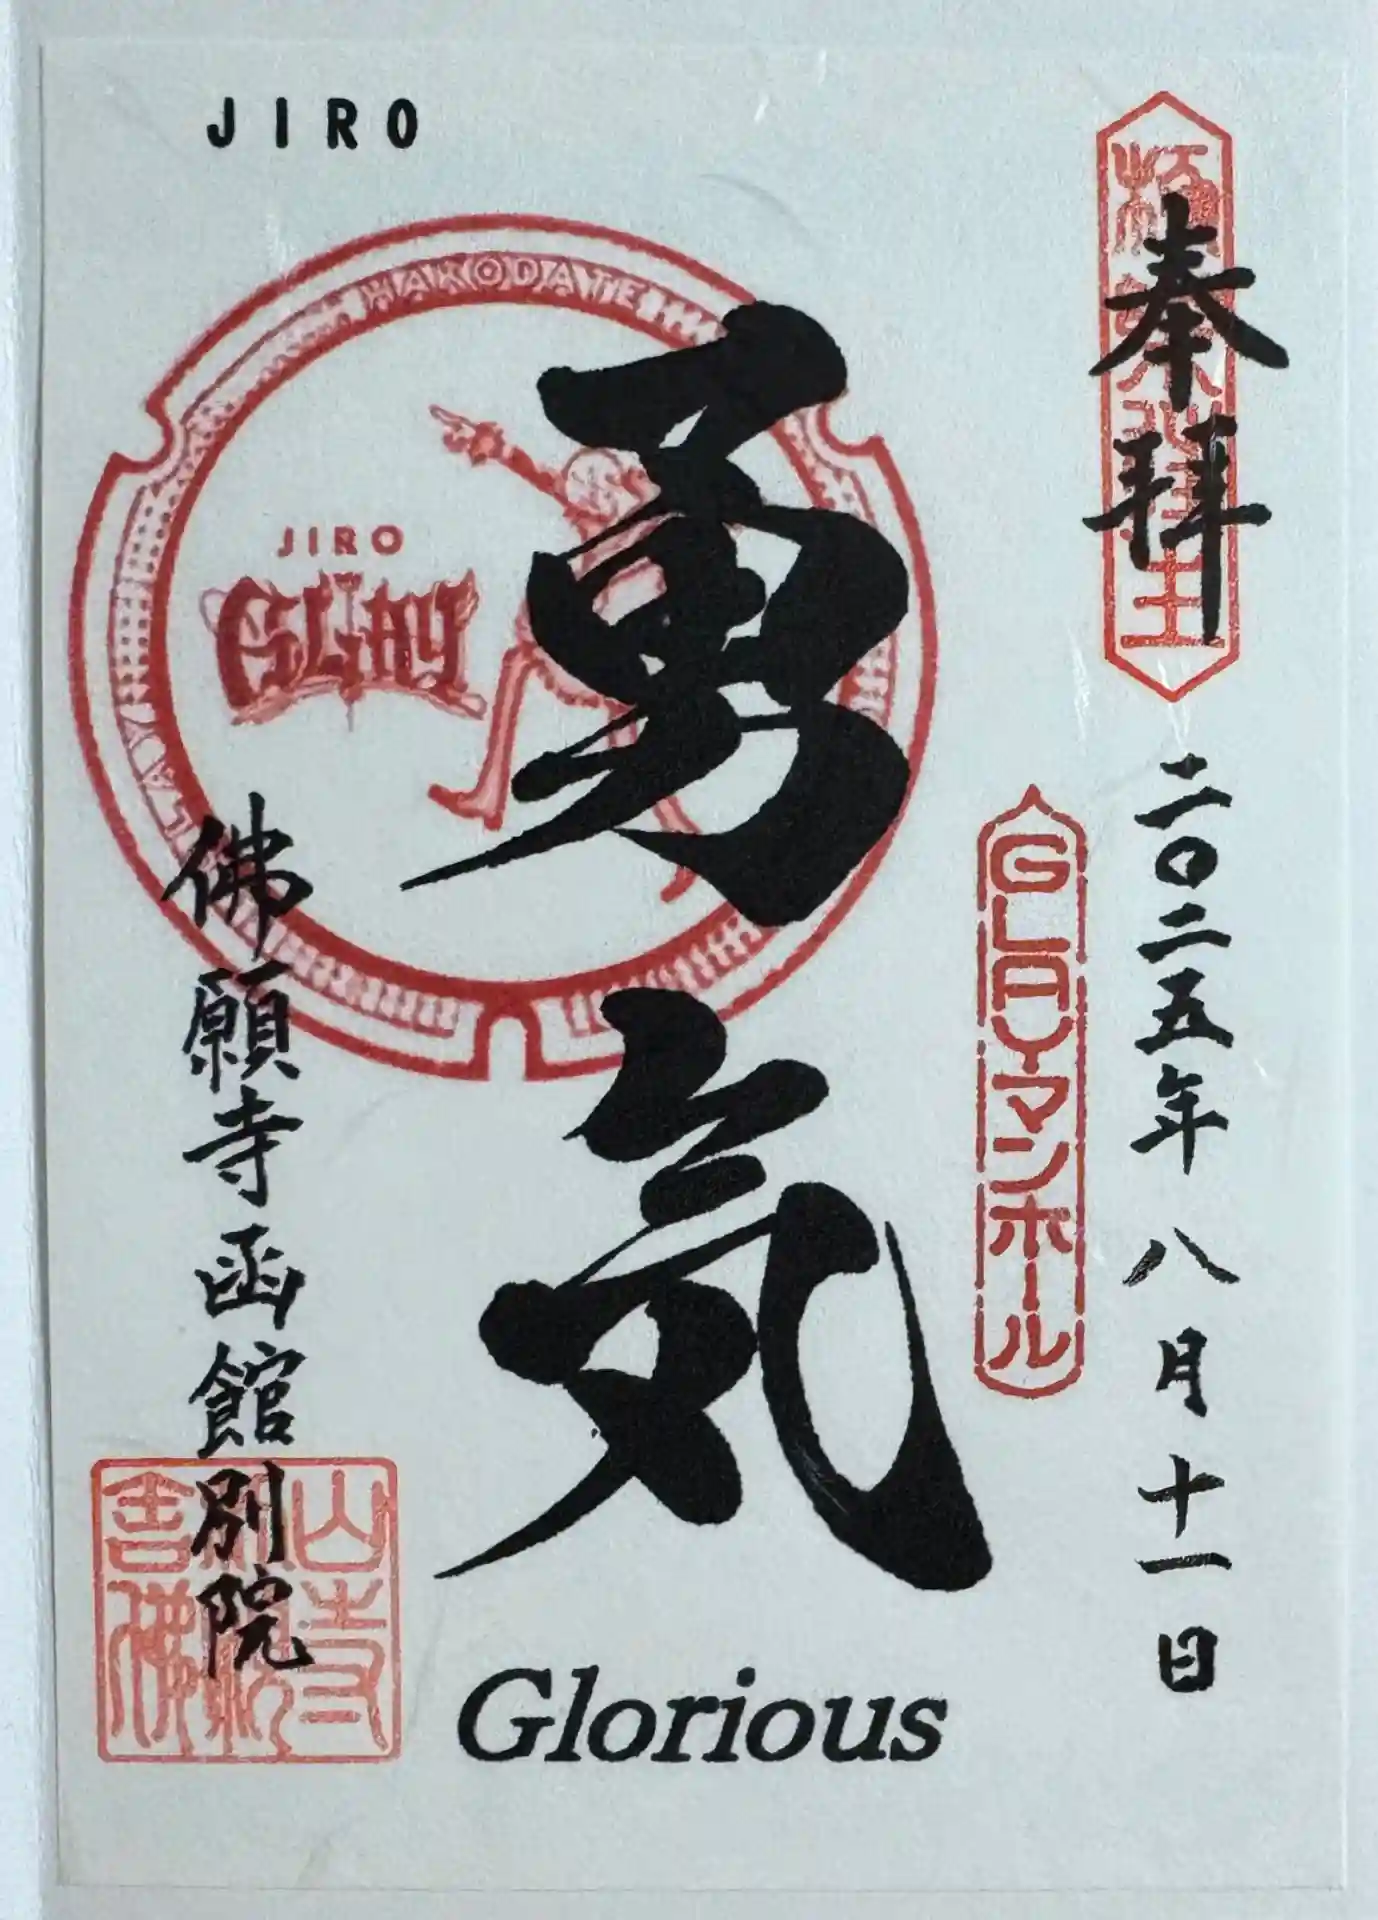 JIRO
奉拝
二〇二五年八月十一日
GLAYマンホール
勇気
Glorious
HAKODATE
JIRO
GLAY
佛願寺函館別院